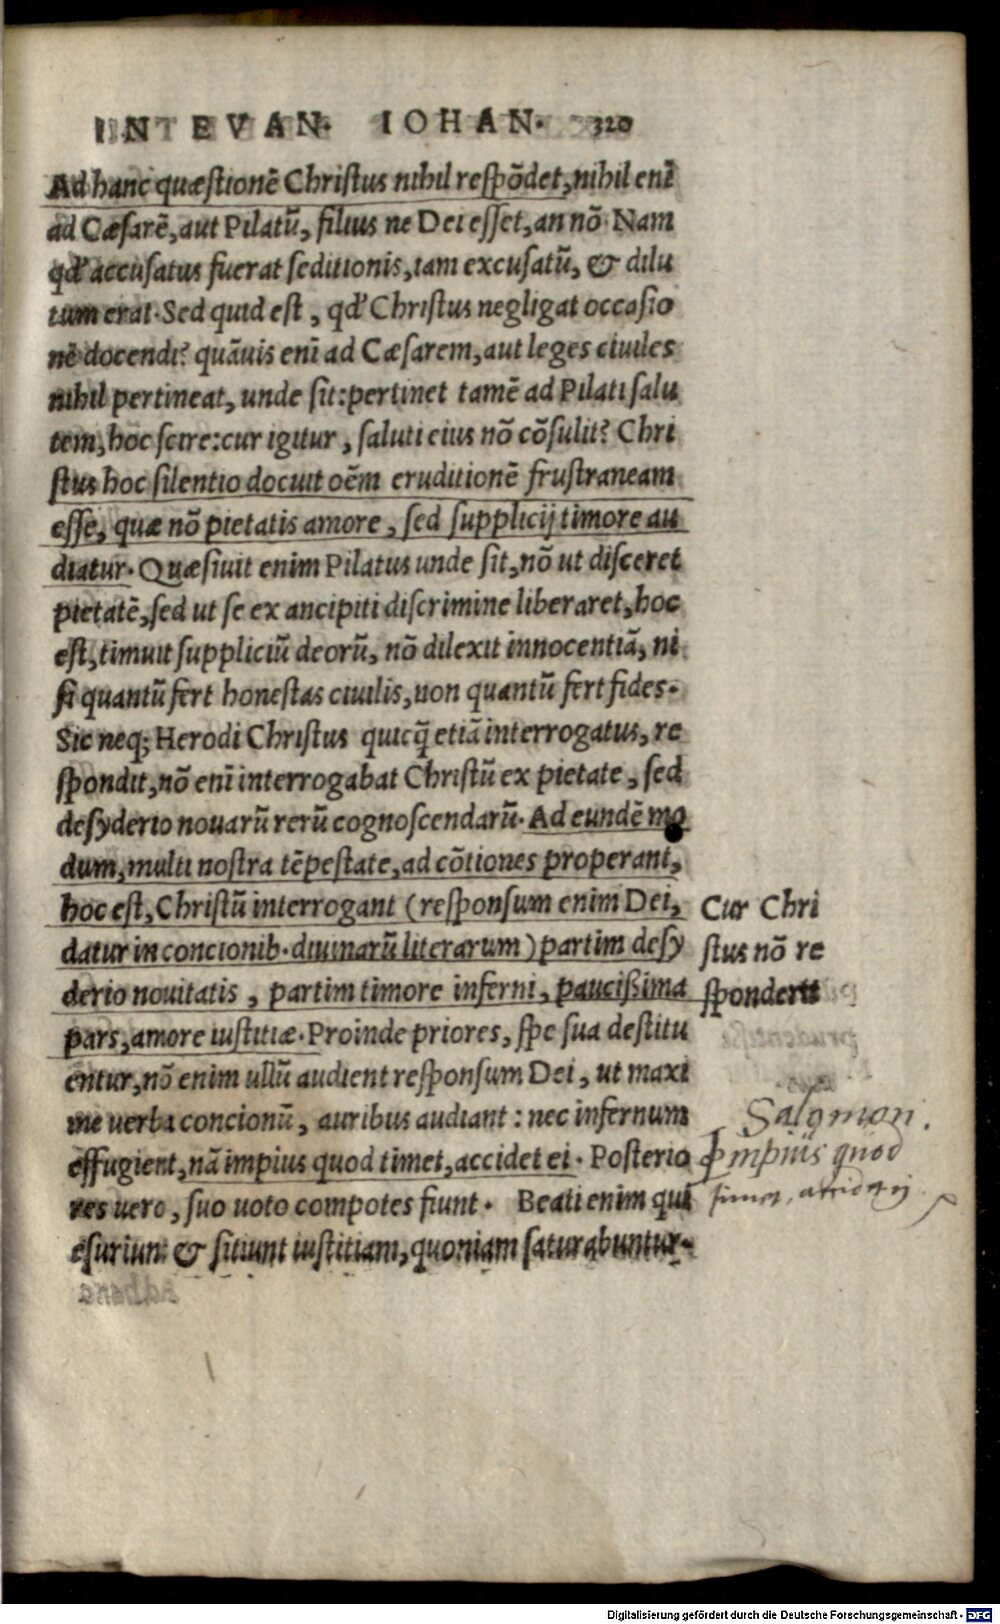 IN EVAN. IOHAN. 320
Ad hanc quæstionẽ Christus nihil respõdet, nihil enĩ
ad Cæsarẽ, aut Pilatũ, filius ne Dei esset, an nõ. Nam
qđ accusatus fuerat seditionis, iam excusatũ, & dilu
tum erat. Sed quid est, qđ Christus negligat occasio
nẽ docendi? quãuis enĩ ad Cæsarem, aut leges ciuiles
nihil pertineat, unde sit: pertinet tamẽ ad Pilati salu
tem, hoc scire: cur igitur, saluti eius nõ cõsulit? Chri
stus hoc silentio docuit oẽm eruditionẽ frustraneam
esse, quæ nõ pietatis amore, sed supplicij timore au
diatur. Quæsiuit enim Pilatus unde sit, nõ ut disceret
pietatẽ, sed ut se ex ancipiti discrimine liberaret, hoc
est, timuit suppliciũ deorũ, nõ dilexit innocentiã, ni
si quantũ fert honestas ciuilis, non quantũ fert fides.
Sic neq; Herodi Christus quicq̃ etiã interrogatus, re
spondit, nõ enĩ interrogabat Christũ ex pietate, sed
desyderio nouarũ rerũ cognoscendarũ. Ad eundẽ mo
dum, multi nostra tẽpestate, ad cõtiones properant,
hoc est, Christũ interrogant (responsum enim Dei,
datur in concionib. diuinarũ literarum) partim desy
derio nouitatis, partim timore inferni, paucißima
pars, amore iustitiæ. Proinde priores, spe sua destitu
entur, nõ enim ullũ audient responsum Dei, ut maxi
me uerba concionũ, auribus audiant: nec infernum
effugient, nã impius quod timet, accidet ei. Posterio
res uero, suo uoto compotes fiunt. Beati enim qui
esuriunt & sitiunt iustitiam, quoniam saturabuntur.
Cur Chri
stus nõ re
sponderit
Salomon.
impius quod
timet, accidet ei
Digitalisierung gefördert durch die Deutsche Forschungsgemeinschaft - DFG